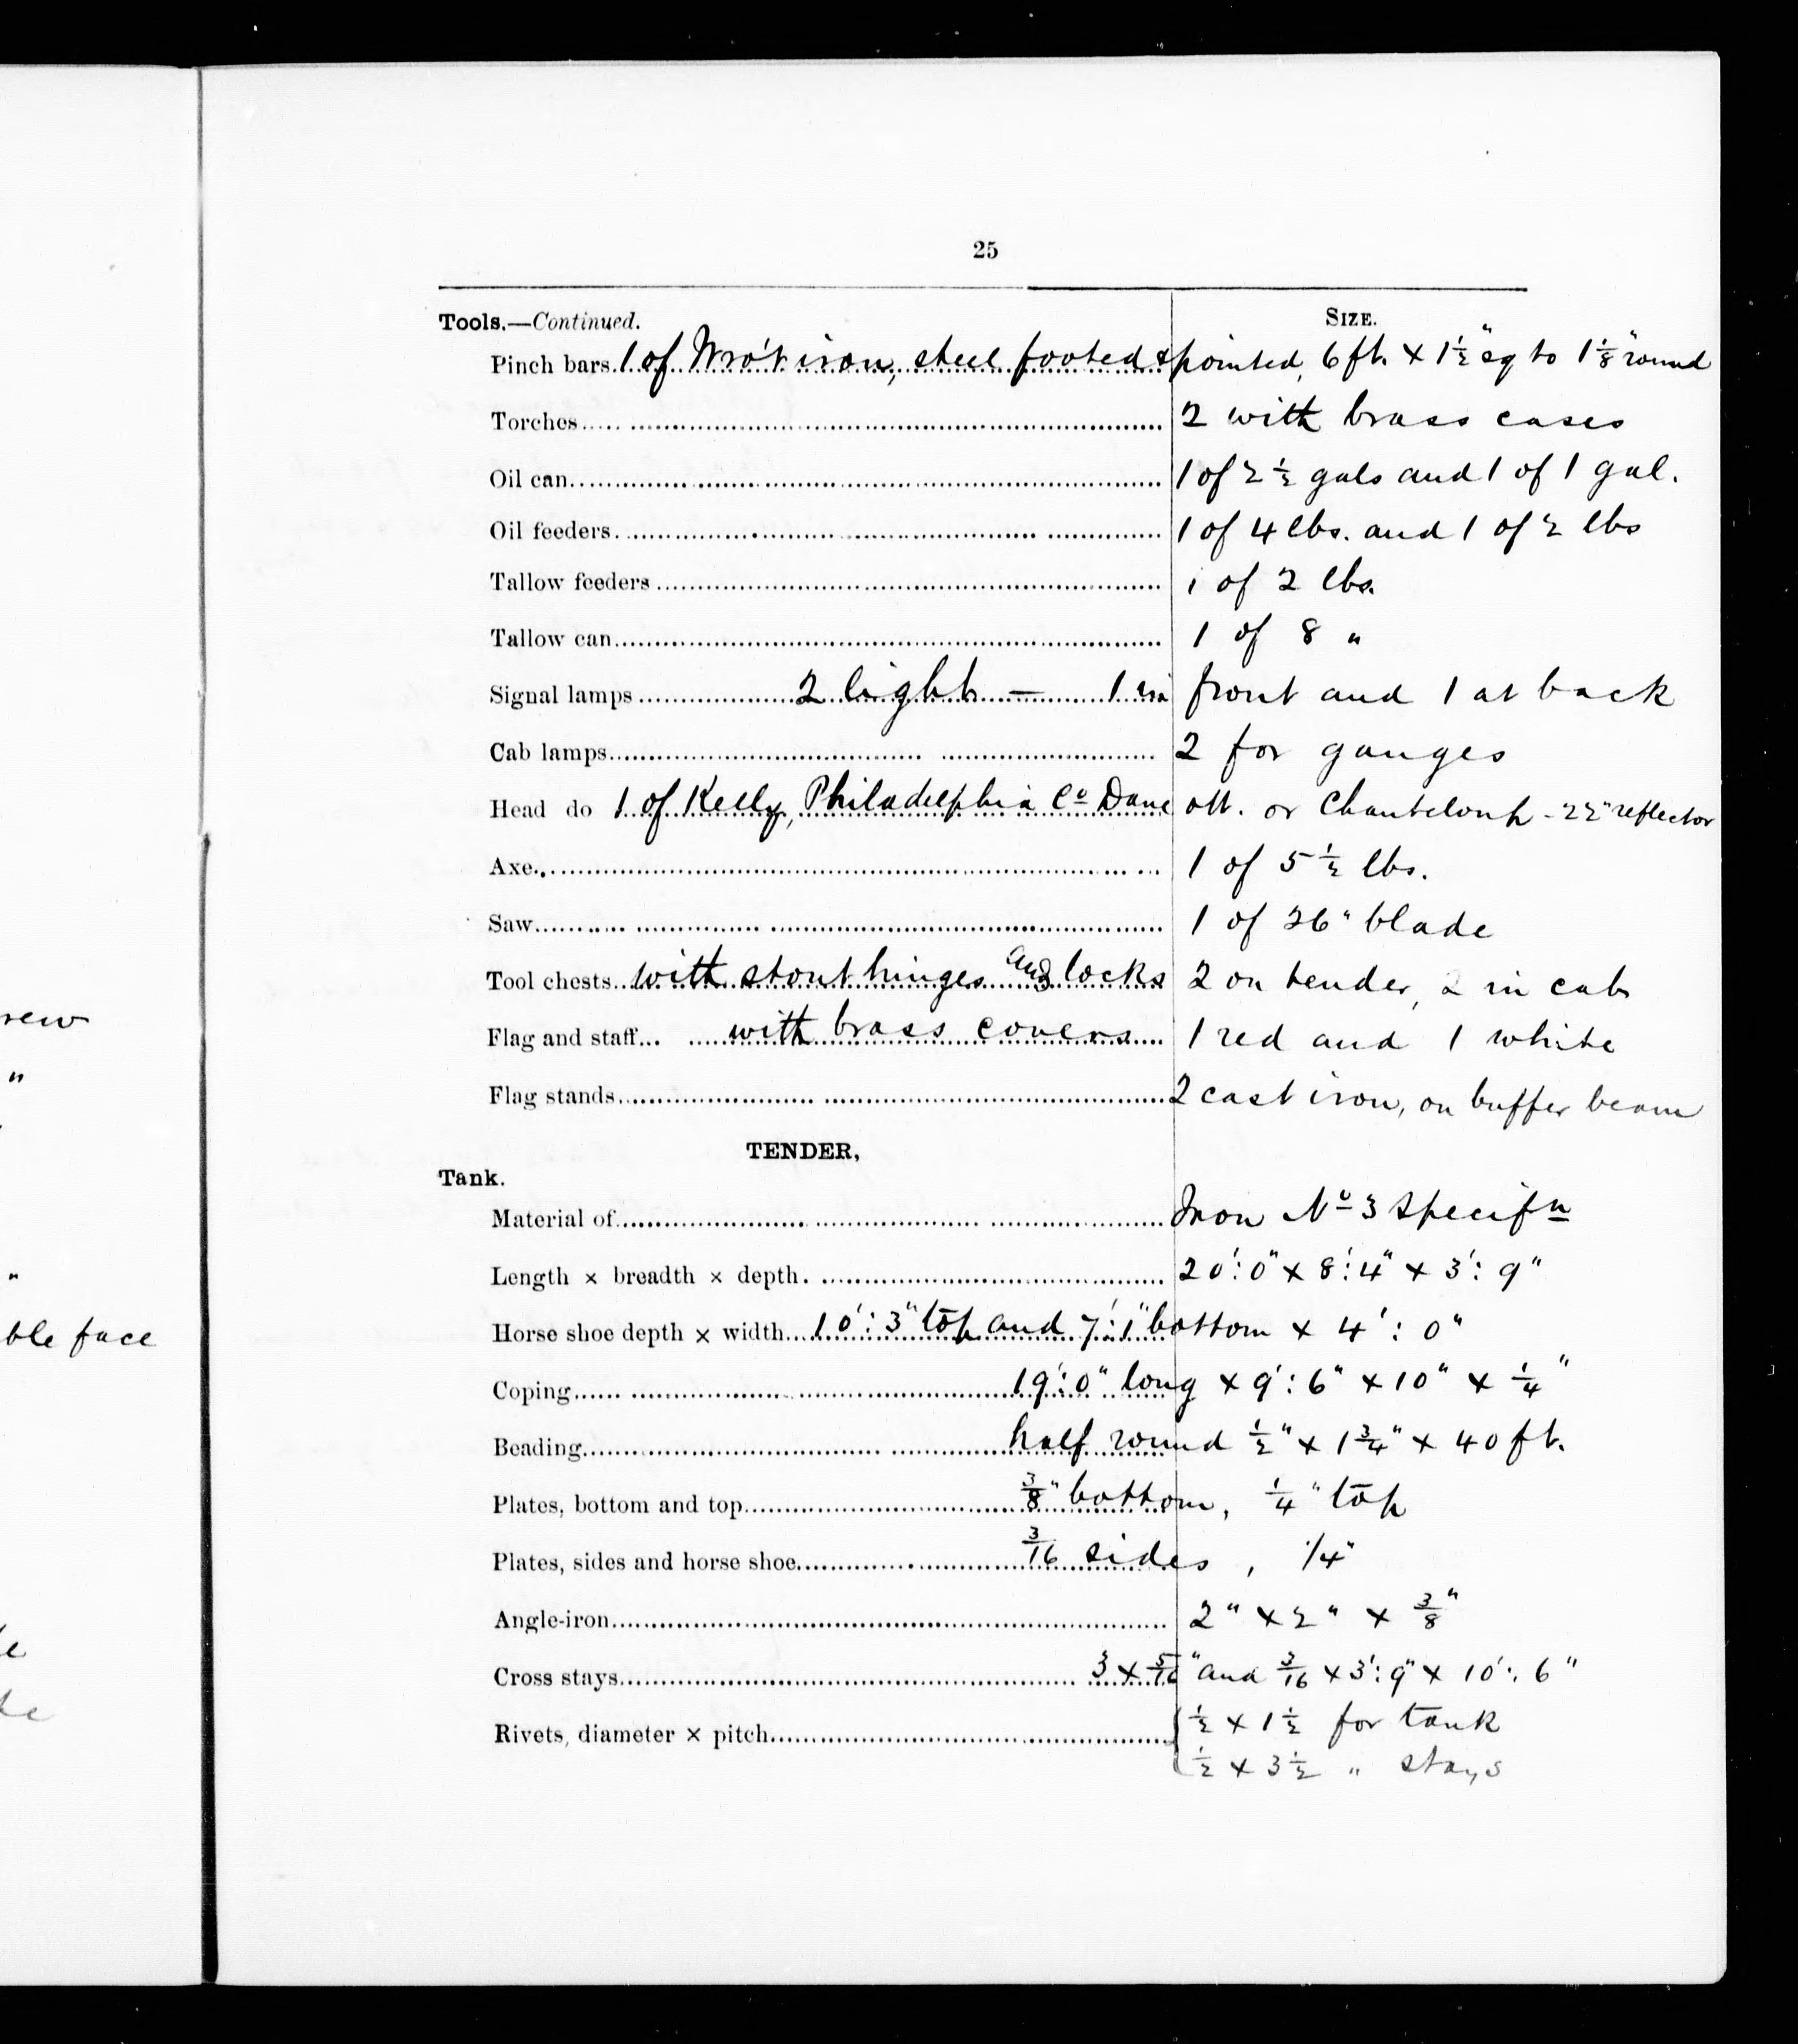 25
Tools.—Continued. SIZE.
Pinch bars. 1 of Wro't iron, steel footed & pointed, 6 ft. × 1½" sq to 1⅛" round
Torches 2 with brass cases
Oil can 1 of 2½ gals and 1 of 1 gal.
Oil feeders 1 of 4 lbs. and 1 of 2 lbs
Tallow feeders 1 of 2 lbs.
Tallow can 1 of 8 "
Signal lamps 2 light — 1 in front and 1 at back
Cab lamps 2 for gauges
Head do 1 of Kelly, Philadelphia Co Dane att. or Chanteloup - 22" reflector
Axe 1 of 5½ lbs.
Saw 1 of 26" blade
Tool chests with stout hinges and locks 2 on tender, 2 in cab
Flag and staff with brass covers 1 red and 1 white
Flag stands 2 cast iron, on buffer beam
TENDER,
Tank.
Material of Iron No 3 Specifn
Length × breadth × depth. 20':0" × 8':4" × 3':9"
Horse shoe depth × width 10':3" top and 7':1" bottom × 4':0"
Coping 19':0" long × 9':6" × 10" × ¼"
Beading half round ½" × 1¾" × 40 ft.
Plates, bottom and top ⅜" bottom, ¼" top
Plates, sides and horse shoe 3/16 sides, 1/4"
Angle-iron 2" × 2" × ⅜"
Cross stays 3 × 5/16" and 3/16 × 3':9" × 10':6"
Rivets, diameter × pitch ½ × 1½ for tank
½ × 3½ " stays
"
"
ble face